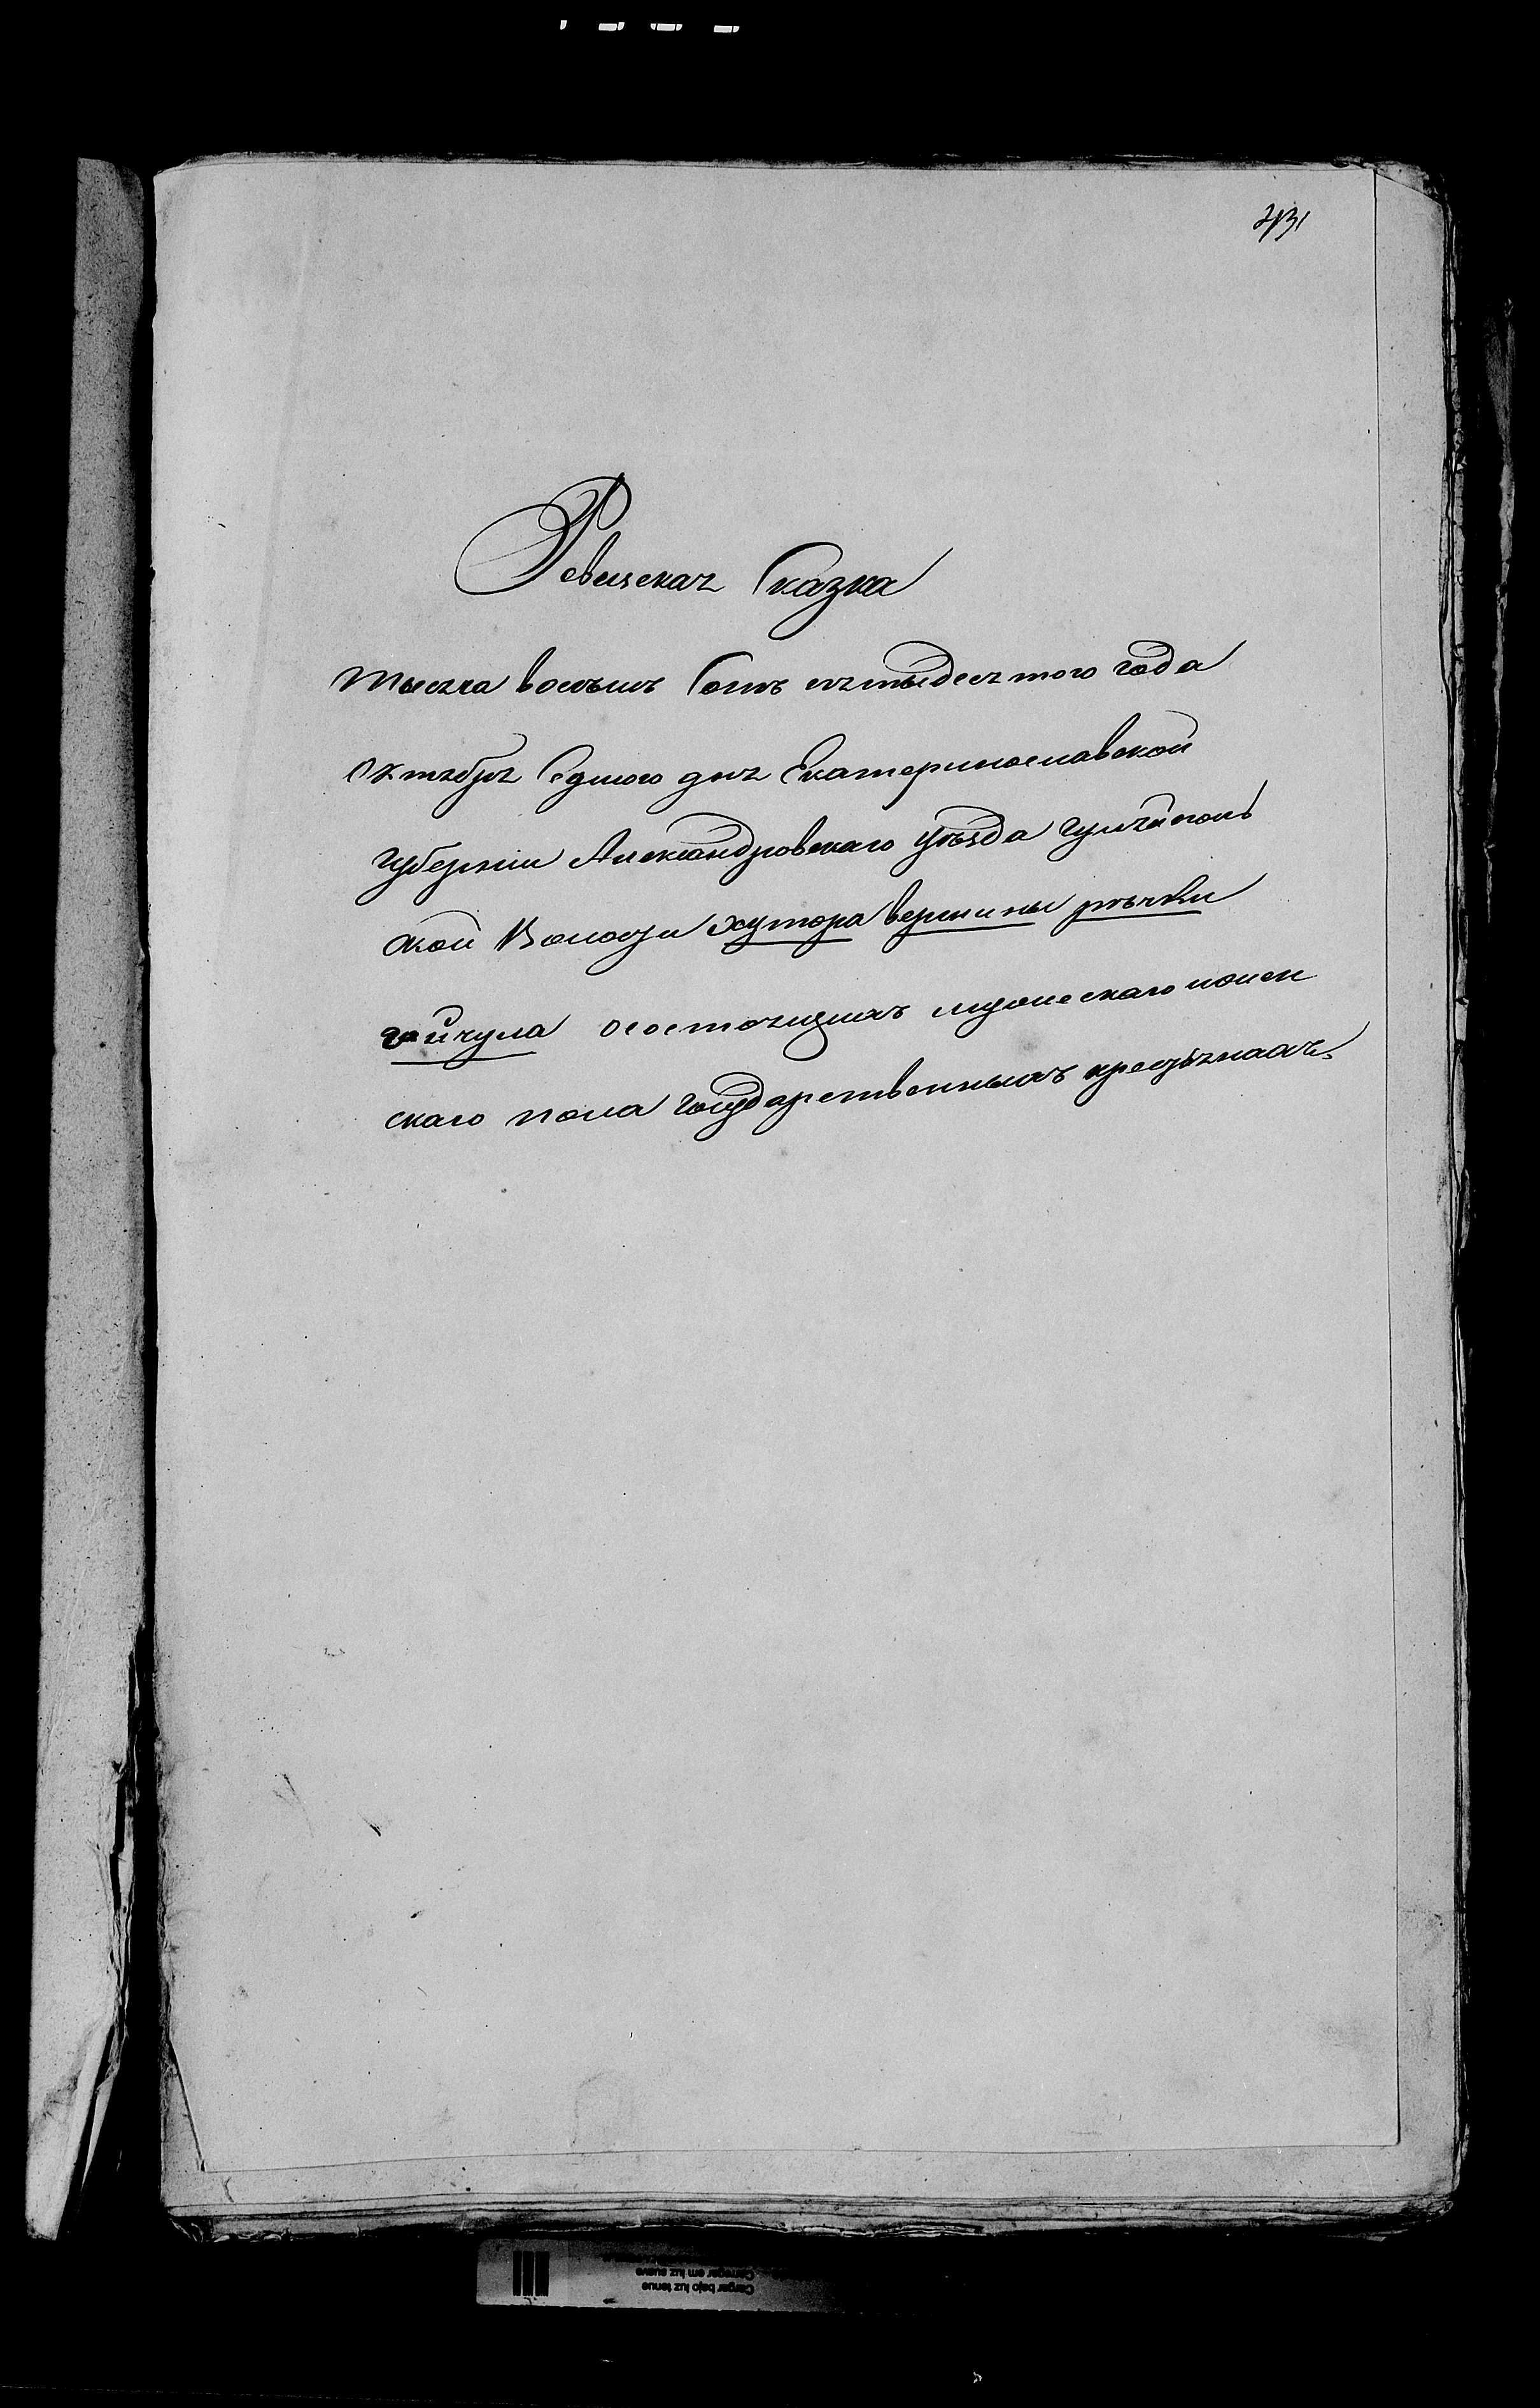 Ревизская Сказка
тысяча восемь Сотъ пятьдесятого года
Октября Седмого дня Екатеринославской
губерніи Александровскаго уѣзда гуляйполь
ской Волости хутора вершины рѣчки
гайчула о состоящихъ мужескаго и женс
скаго пола государственныхъ крестьянахъ